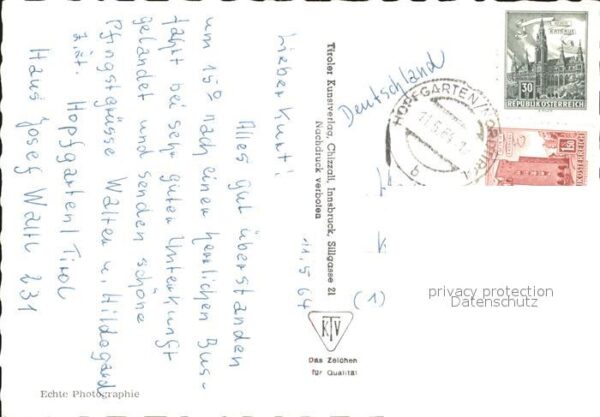 11.5.64
Lieber Kurt!
Alles gut überstanden
um 15⁰ nach einer herrlichen Bus-
fahrt bei sehr guter Unterkunft
gelandet und senden schöne
Pfingstgrüsse Walter u. Hildegard
z. Zt. Hopfgarten/Tirol
Haus Josef Walti 231
Tiroler Kunstverlag, Chizzali, Innsbruck, Sillgasse 21
Nachdruck verboten
KTV
Das Zeichen
für Qualität
Deutschland
(1)
HOPFGARTEN
b
WIEN
RATHAUS
30
REPUBLIK ÖSTERREICH
1.50
privacy protection
Datenschutz
Echte Photographie